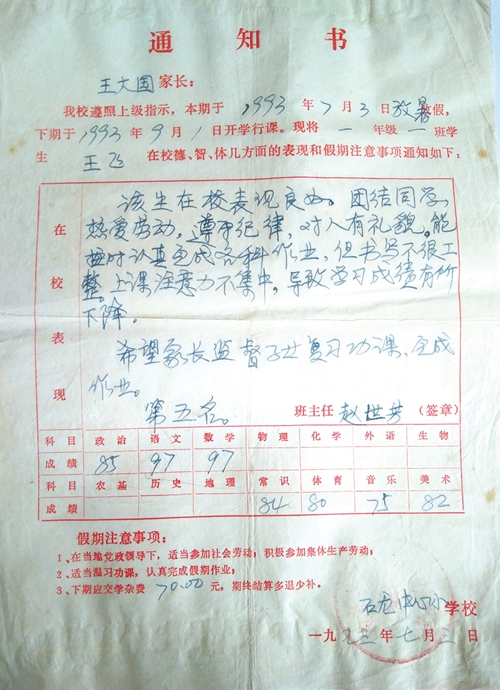 通知书
王大国家长：
我校遵照上级指示，本期于1993年7月3日放暑假，
下期于1993年9月1日开学行课。现将一年级一班学
生王飞在校德、智、体几方面的表现和假期注意事项通知如下：
在校表现
该生在校表现良好。团结同学，
热爱劳动，遵守纪律，对人有礼貌。能
按时认真完成各科作业，但书写不很工
整。上课注意力不集中，导致学习成绩有所
下降。
希望家长监督子女复习功课、完成
作业。
第五名。
班主任 赵世芳（签章）
科目 政治 语文 数学 物理 化学 外语 生物
成绩 85 97 97
科目 农基 历史 地理 常识 体育 音乐 美术
成绩 84 80 75 82
假期注意事项：
1、在当地党政领导下，适当参加社会劳动；积极参加集体生产劳动；
2、适当温习功课，认真完成假期作业；
3、下期应交学杂费70.00元，期终结算多退少补。
石龙中心小学校
一九九三年七月三日